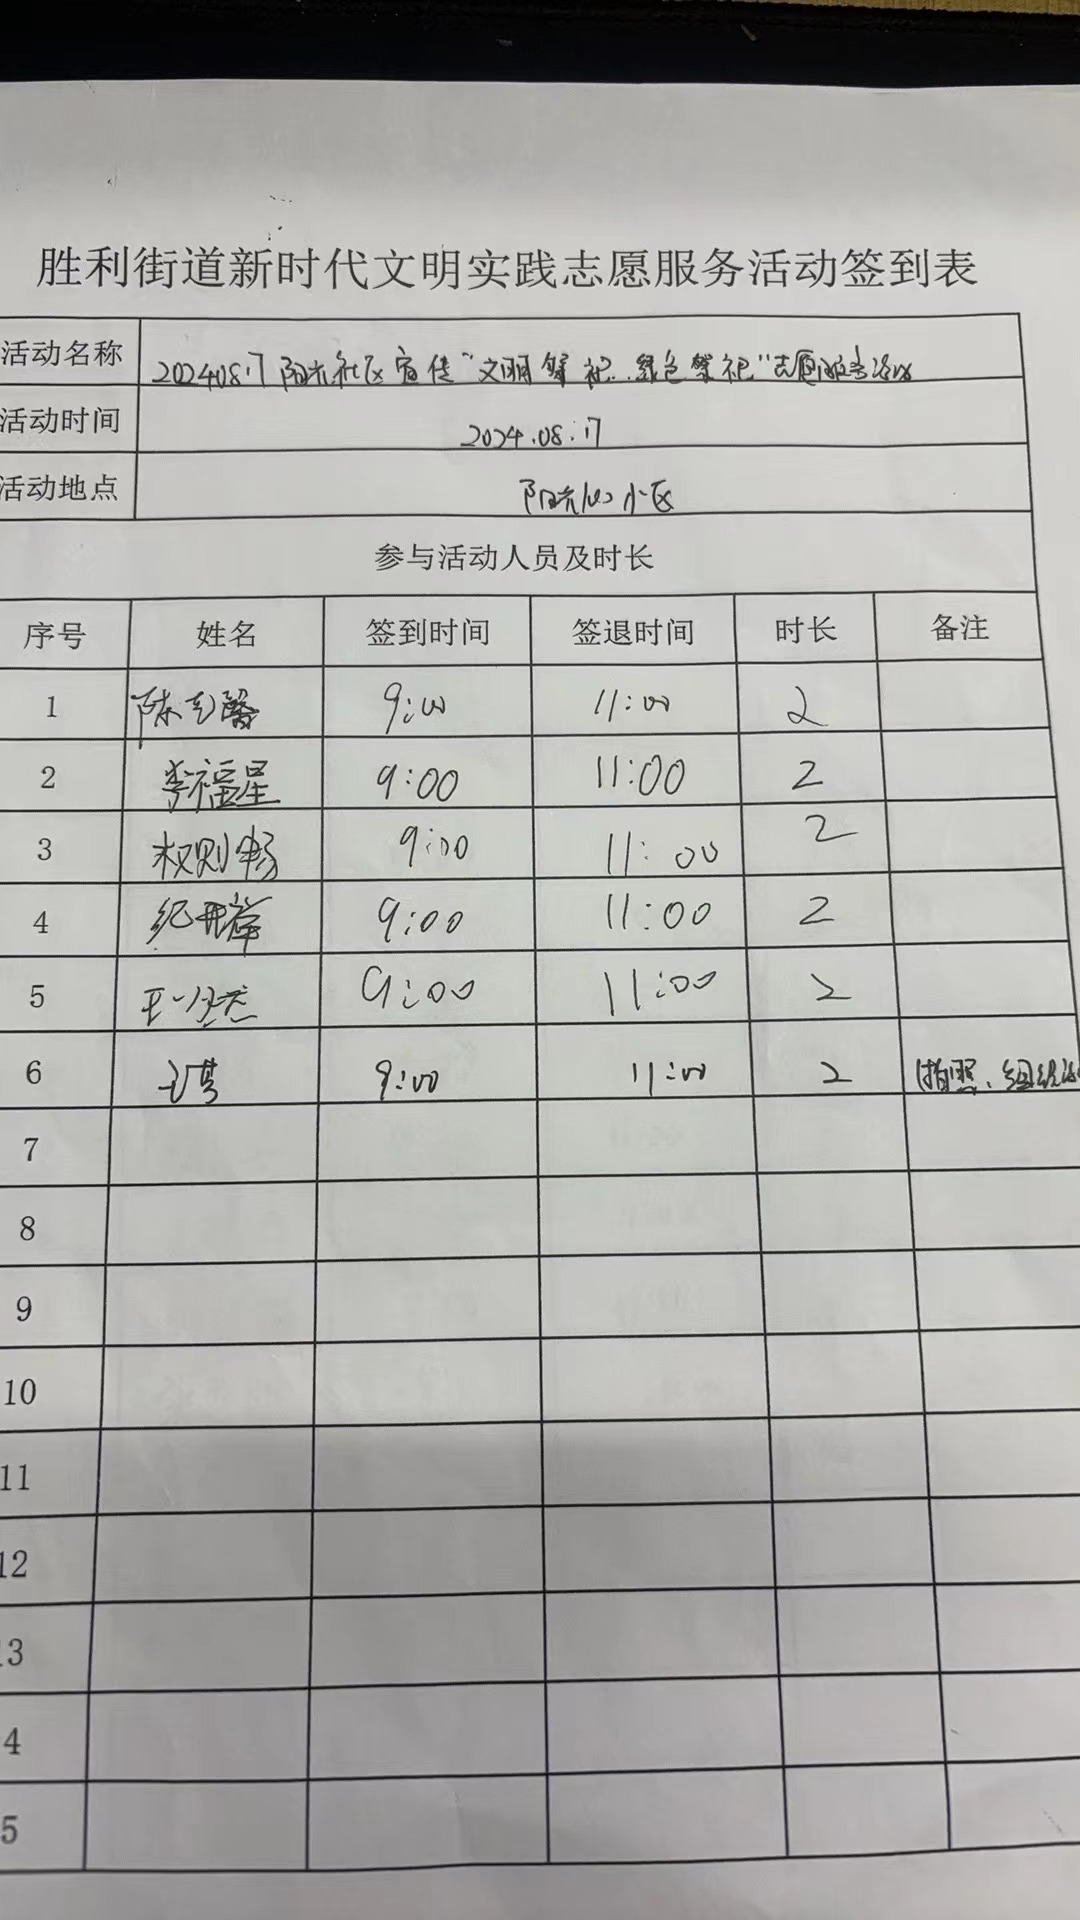 胜利街道新时代文明实践志愿服务活动签到表
活动名称 20240817阳光社区宣传“文明祭祀、绿色祭祀”志愿服务活动
活动时间 2024.08.17
活动地点 阳光 小区
参与活动人员及时长
序号 姓名 签到时间 签退时间 时长 备注
1 陈 9:00 11:00 2
2 李福星 9:00 11:00 2
3 权则畅 9:00 11:00 2
4 纪开 9:00 11:00 2
5 王一 9:00 11:00 2
6 9:00 11:00 2 拍照、组织
7
8
9
10
11
12
13
4
5